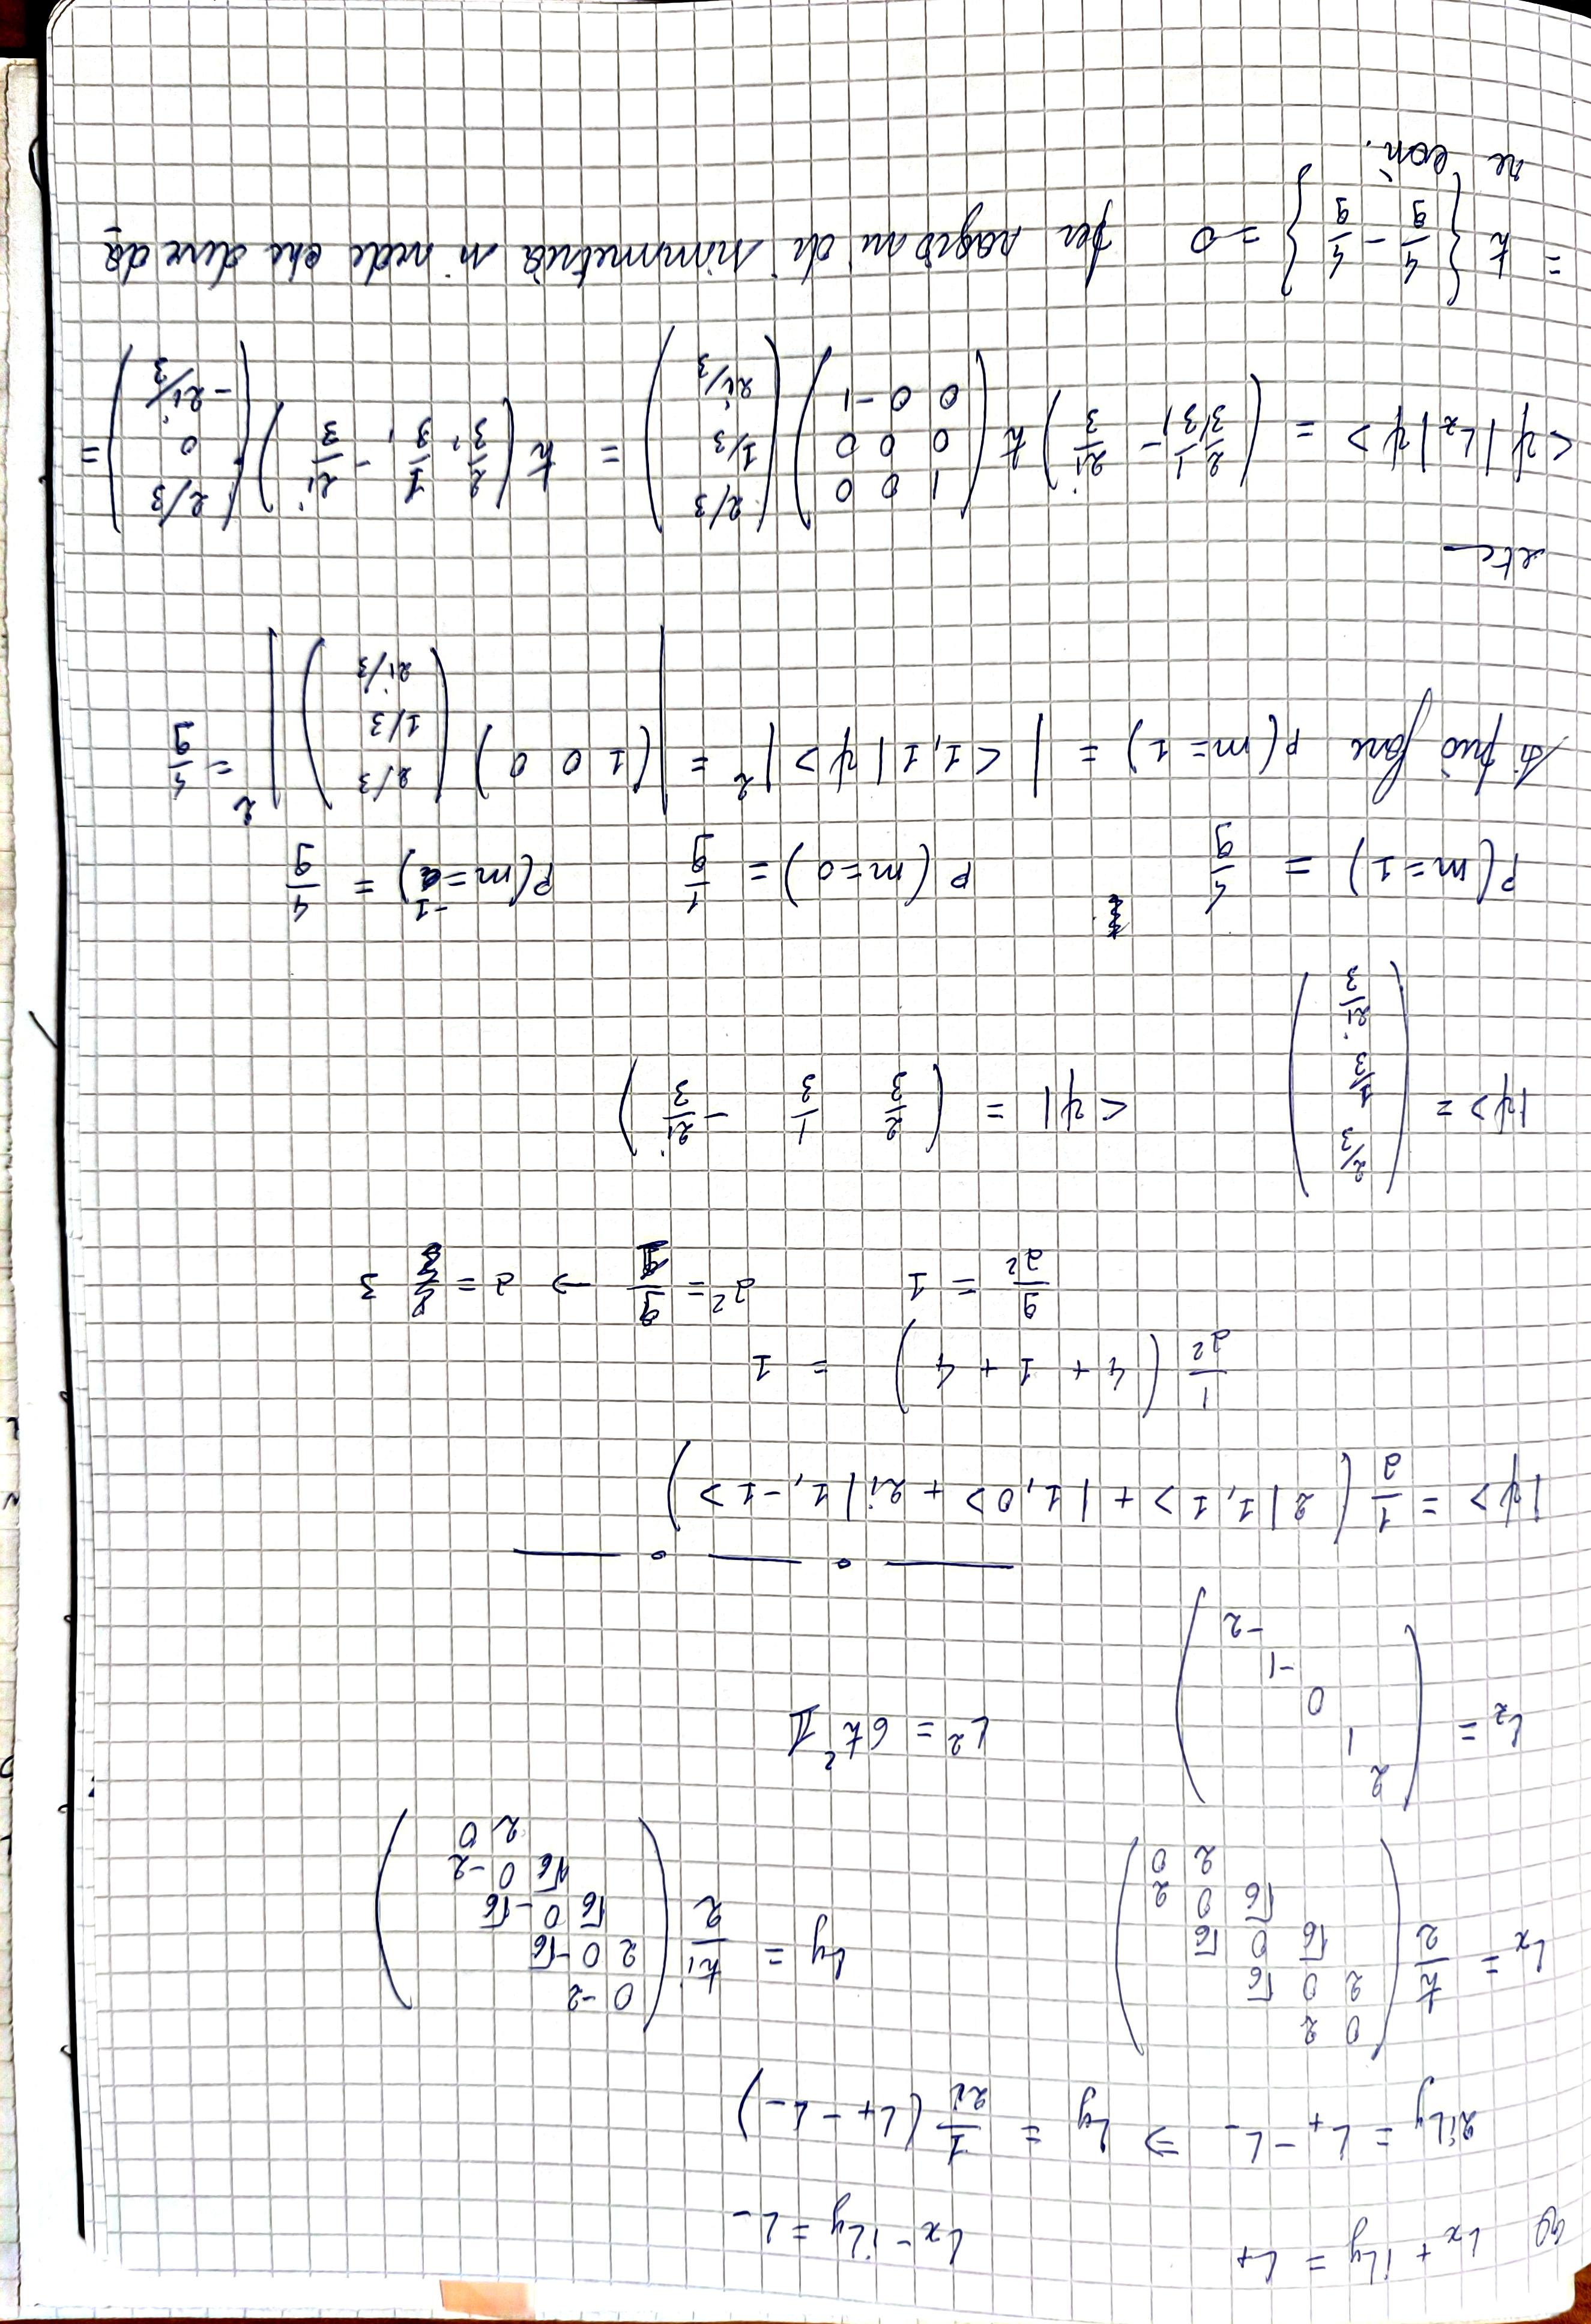 Lx + iLy = L+ Lx - iLy = L-
2iLy = L+ - L- ⇒ Ly = 1/2i (L+ - L-)
Lx = ħ/2 ( 0 2
2 0 √6
√6 0 √6
√6 0 2
2 0 )
Ly = ħi/2 ( 0 -2
2 0 -√6
√6 0 -√6
√6 0 -2
2 0 )
Lz = ( 2
1
0
-1
-2 )
L² = 6ħ² 𝟙
|ψ> = 1/a ( 2|1,1> + |1,0> + 2i|1,-1> )
1/a² ( 4 + 1 + 4 ) = 1
9/a² = 1 a² = 9/1 → a = 3
|ψ> = ( 2/3
1/3
2i/3 )
<ψ| = ( 2/3 1/3 -2i/3 )
P(m=1) = 4/9 P(m=0) = 1/9 P(m=-1) = 4/9
Si può fare P(m=1) = |<1,1|ψ>|² = |(1 0 0) ( 2/3
1/3
2i/3 )|² = 4/9
etc
<ψ|Lz|ψ> = (2/3, 1/3, -2i/3) ħ ( 1 0 0
0 0 0
0 0 -1 ) ( 2/3
1/3
2i/3 ) = ħ (2/3, 1/3, -2i/3) ( 2/3
0
-2i/3 ) =
= ħ { 4/9 - 4/9 } = 0 per ragioni di simmetria si vede che deve da
re così.